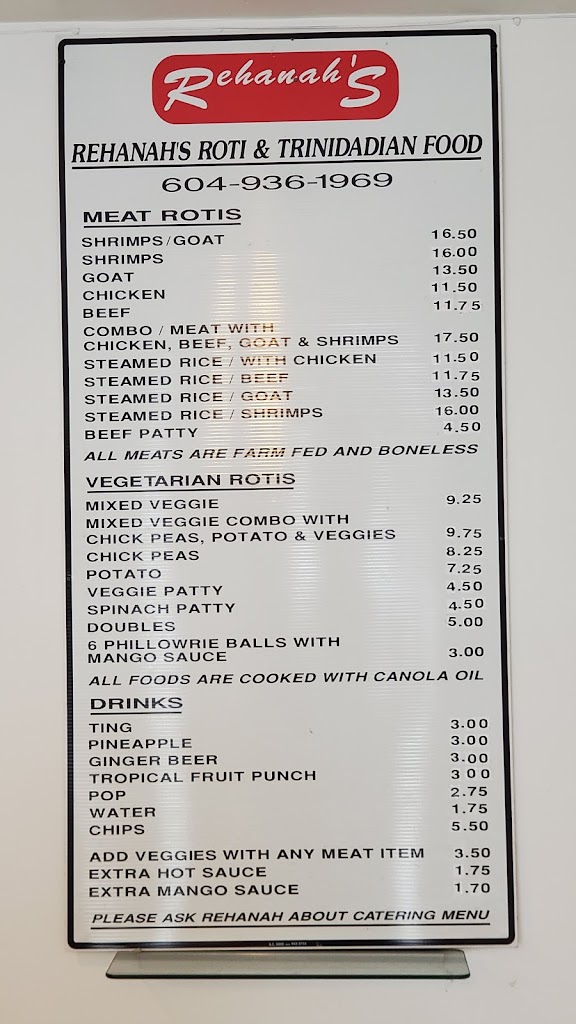 Rehanah's
REHANAH'S ROTI & TRINIDADIAN FOOD
604-936-1969
MEAT ROTIS
SHRIMPS/GOAT 16.50
SHRIMPS 16.00
GOAT 13.50
CHICKEN 11.50
BEEF 11.75
COMBO / MEAT WITH
CHICKEN, BEEF, GOAT & SHRIMPS 17.50
STEAMED RICE / WITH CHICKEN 11.50
STEAMED RICE / BEEF 11.75
STEAMED RICE / GOAT 13.50
STEAMED RICE / SHRIMPS 16.00
BEEF PATTY 4.50
ALL MEATS ARE FARM FED AND BONELESS
VEGETARIAN ROTIS
MIXED VEGGIE 9.25
MIXED VEGGIE COMBO WITH
CHICK PEAS, POTATO & VEGGIES 9.75
CHICK PEAS 8.25
POTATO 7.25
VEGGIE PATTY 4.50
SPINACH PATTY 4.50
DOUBLES 5.00
6 PHILLOWRIE BALLS WITH
MANGO SAUCE 3.00
ALL FOODS ARE COOKED WITH CANOLA OIL
DRINKS
TING 3.00
PINEAPPLE 3.00
GINGER BEER 3.00
TROPICAL FRUIT PUNCH 3 00
POP 2.75
WATER 1.75
CHIPS 5.50
ADD VEGGIES WITH ANY MEAT ITEM 3.50
EXTRA HOT SAUCE 1.75
EXTRA MANGO SAUCE 1.70
PLEASE ASK REHANAH ABOUT CATERING MENU